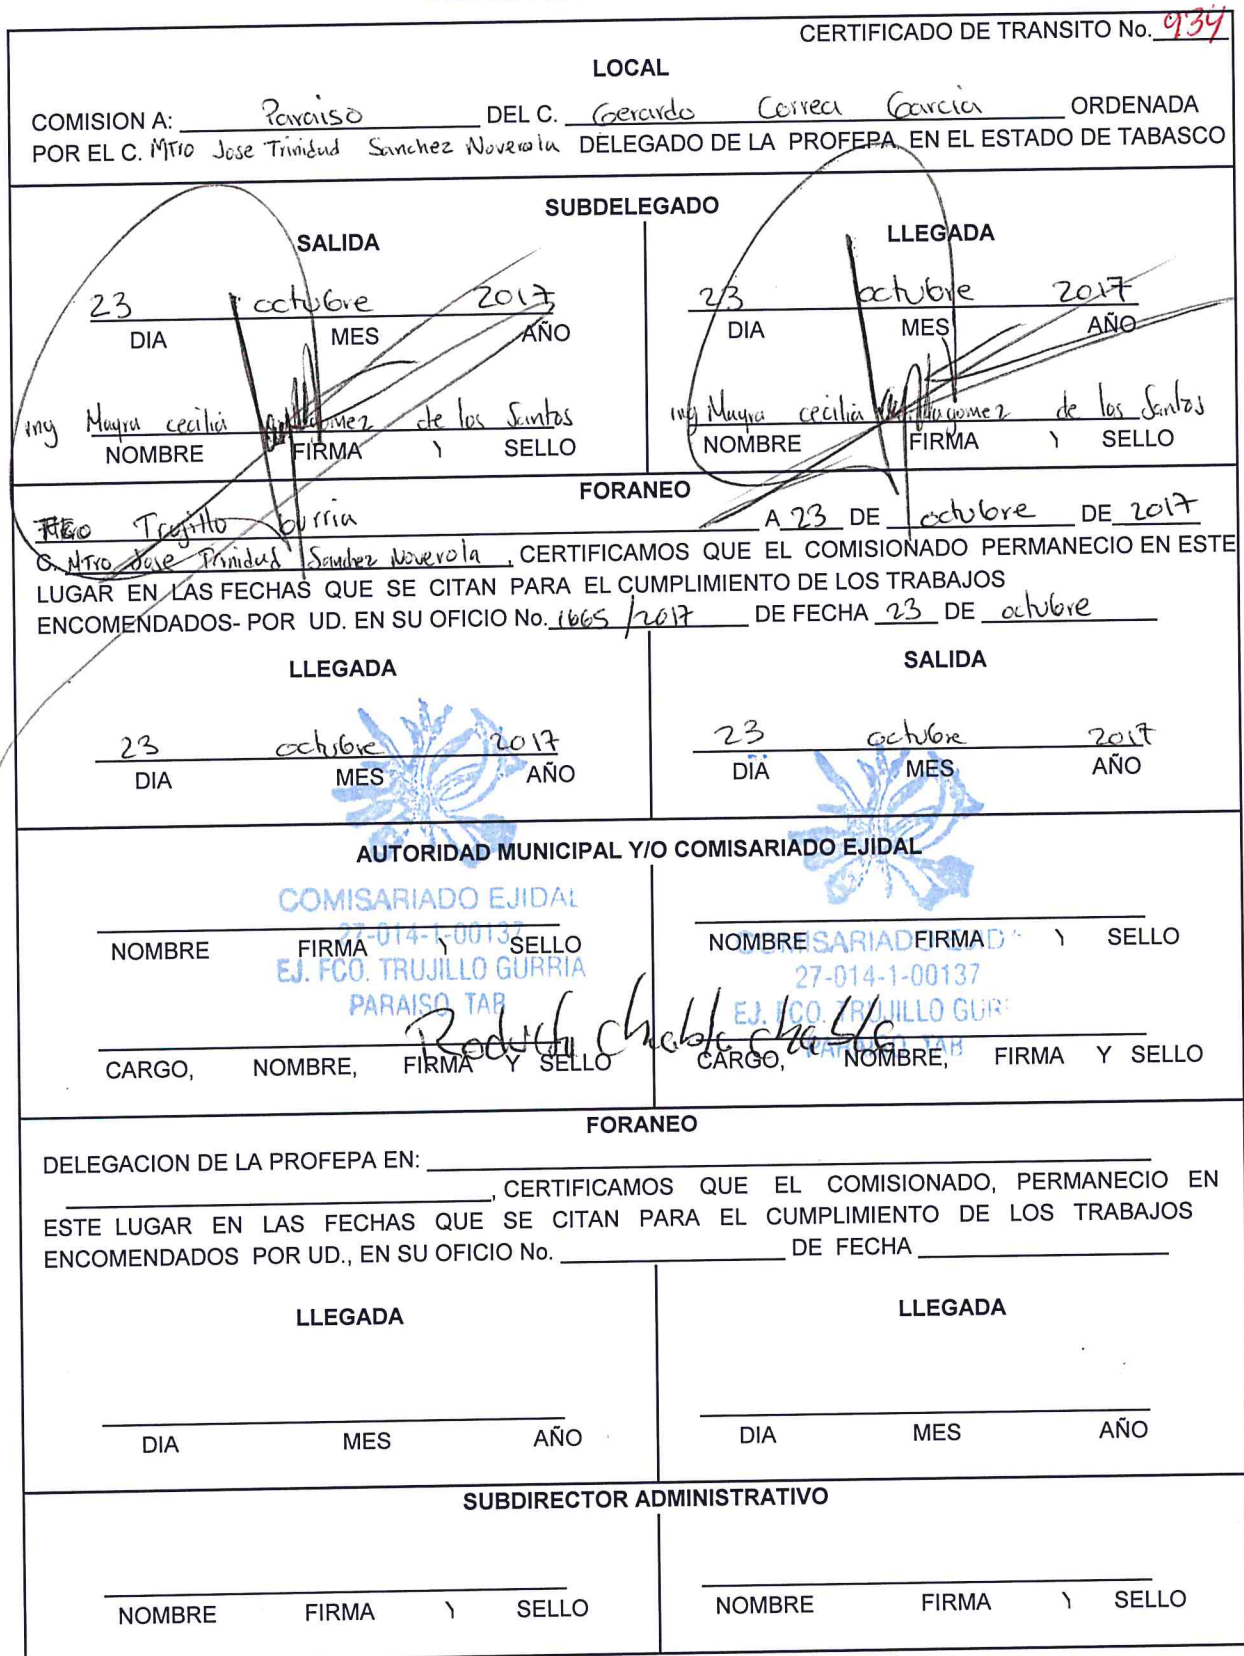 CERTIFICADO DE TRANSITO No. 934
LOCAL
COMISION A: Paraiso DEL C. Gerardo Correa Garcia ORDENADA
POR EL C. Mtro Jose Trinidad Sanchez Noverola DELEGADO DE LA PROFEPA, EN EL ESTADO DE TABASCO
SUBDELEGADO
SALIDA
LLEGADA
23 octubre 2017
23 octubre 2017
DIA MES AÑO
DIA MES AÑO
ing Mayra cecilia de los Santos
ing Mayra cecilia de los Santos
NOMBRE FIRMA Y SELLO
NOMBRE FIRMA Y SELLO
FORANEO
Trujillo Gurria A 23 DE octubre DE 2017
C. Mtro Jose Trinidad Sanchez Noverola, CERTIFICAMOS QUE EL COMISIONADO PERMANECIO EN ESTE
LUGAR EN LAS FECHAS QUE SE CITAN PARA EL CUMPLIMIENTO DE LOS TRABAJOS
ENCOMENDADOS- POR UD. EN SU OFICIO No. 1665/2017 DE FECHA 23 DE octubre
LLEGADA
SALIDA
23 octubre 2017
23 octubre 2017
DIA MES AÑO
DIA MES AÑO
AUTORIDAD MUNICIPAL Y/O COMISARIADO EJIDAL
COMISARIADO EJIDAL
27-014-1-00137
EJ. FCO. TRUJILLO GURRIA
PARAISO, TAB
NOMBRE FIRMA Y SELLO
NOMBRE FIRMA Y SELLO
COMISARIADO EJIDA
27-014-1-00137
EJ. FCO. TRUJILLO GUR
PARAISO, TAB
Chable Chable
CARGO, NOMBRE, FIRMA Y SELLO
CARGO, NOMBRE, FIRMA Y SELLO
FORANEO
DELEGACION DE LA PROFEPA EN:
, CERTIFICAMOS QUE EL COMISIONADO, PERMANECIO EN
ESTE LUGAR EN LAS FECHAS QUE SE CITAN PARA EL CUMPLIMIENTO DE LOS TRABAJOS
ENCOMENDADOS POR UD., EN SU OFICIO No. DE FECHA
LLEGADA
LLEGADA
DIA MES AÑO
DIA MES AÑO
SUBDIRECTOR ADMINISTRATIVO
NOMBRE FIRMA Y SELLO
NOMBRE FIRMA Y SELLO